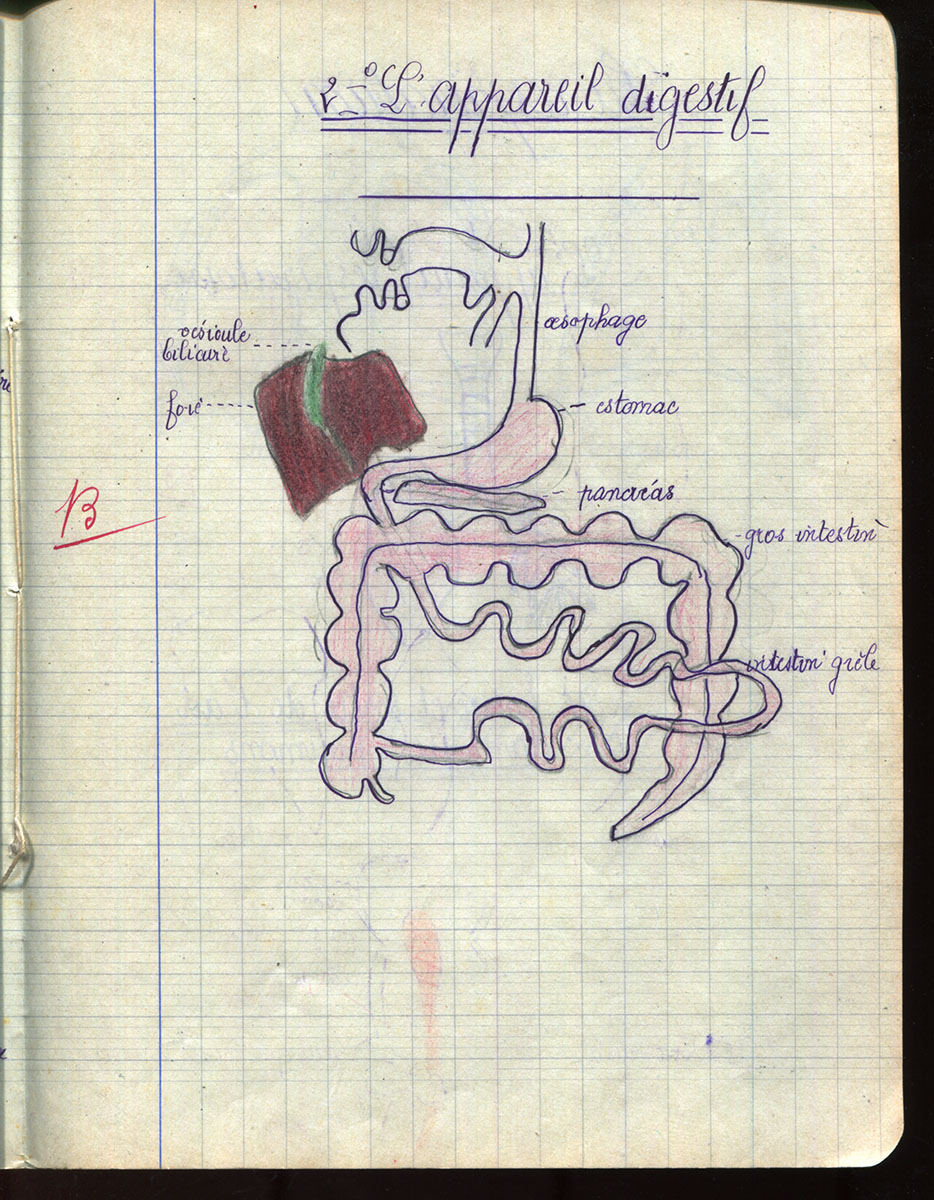 2-° L'appareil digestif
œsophage
vésicule
biliaire
foie
estomac
pancréas
B
gros intestin
intestin grêle